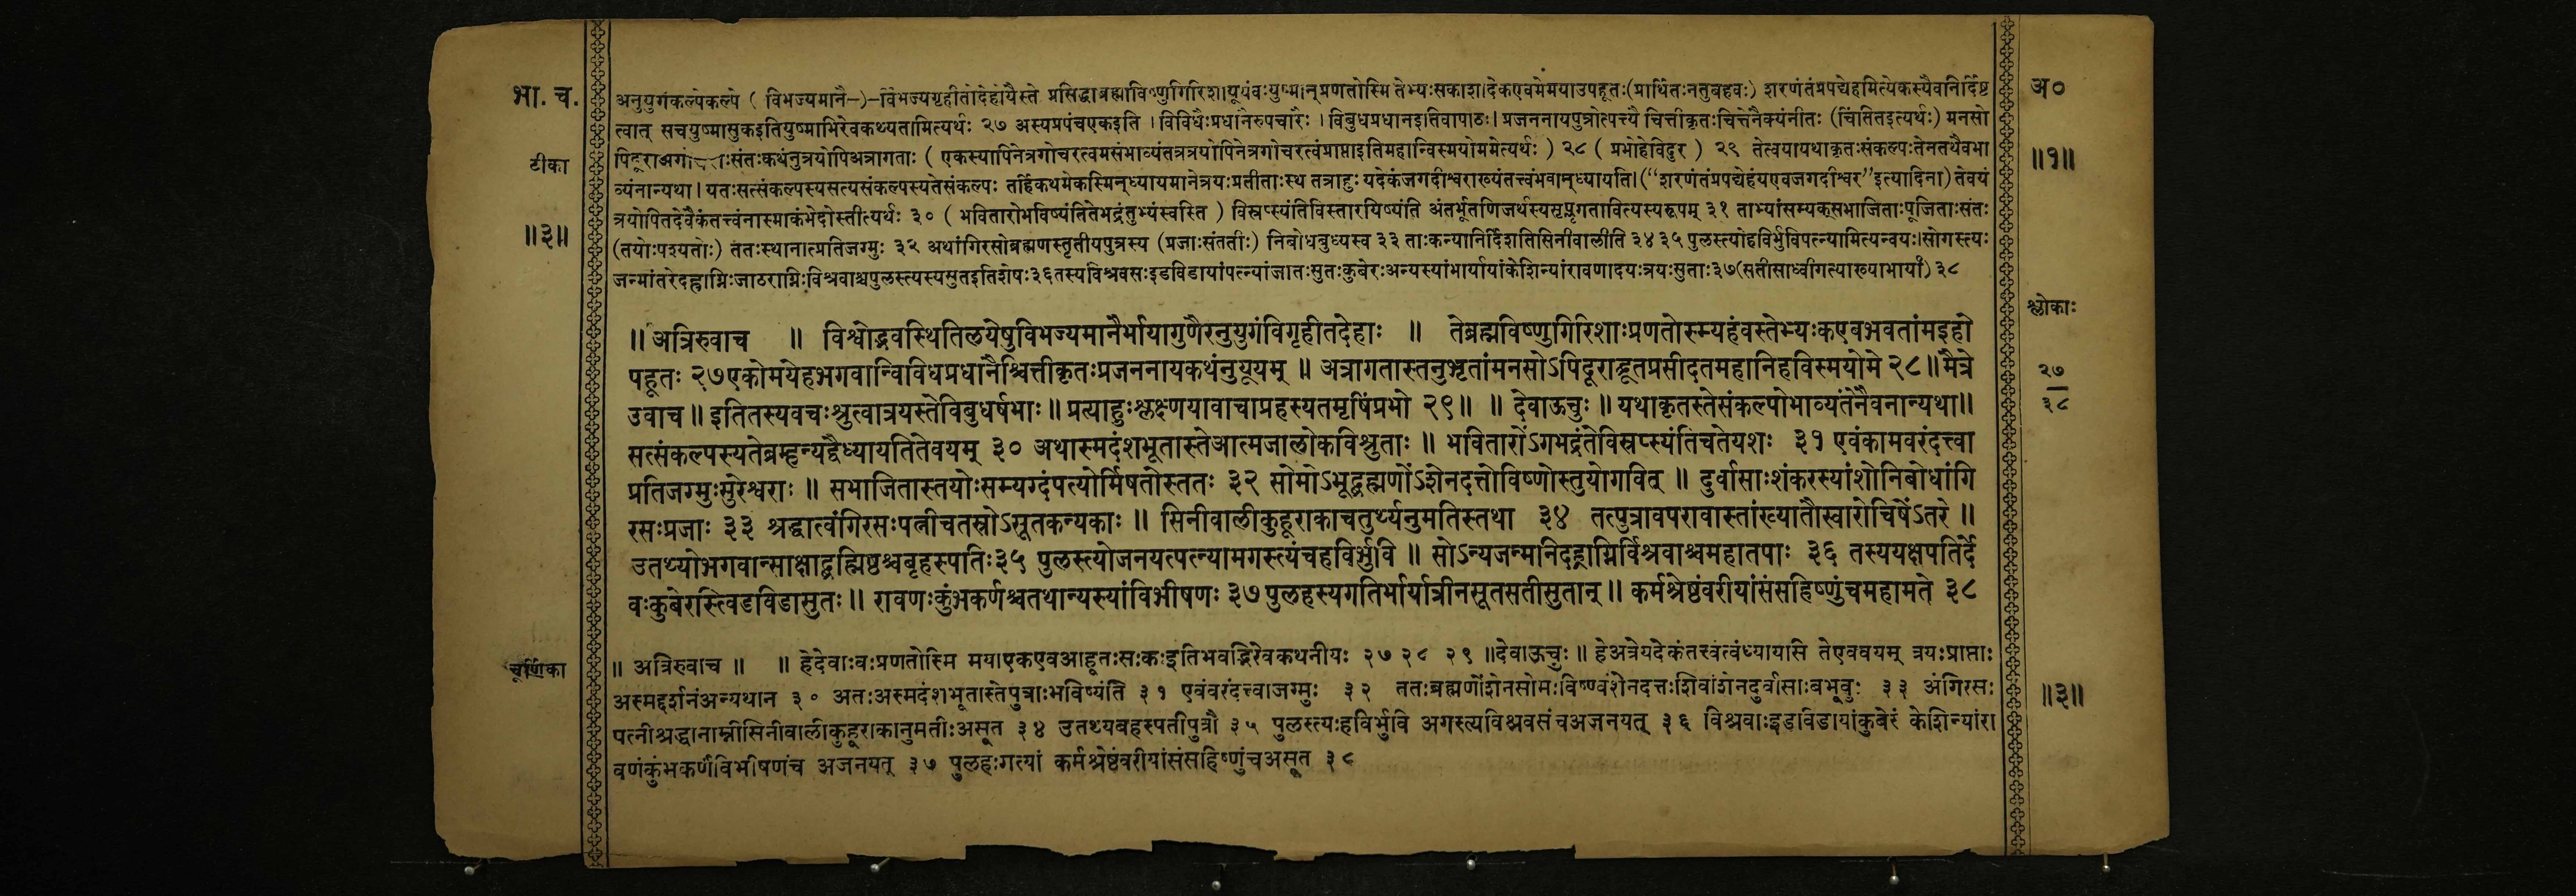 भा. च.
टीका
॥३॥
चूर्णिका
अनुयुगंकल्पेकल्पे ( विभज्यमानै-)-विभज्यगृहीतोदेहोयैस्ते प्रसिद्धाब्रह्माविष्णुगिरिशा।यूयंवःयुष्मान्प्रणतोस्मि तेभ्यःसकाशादेकएवमेमयाउपहूतः(प्रार्थितःनतुबहवः) शरणंतंप्रपद्येहमित्येकस्यैवनिर्दिष्ट
त्वात् सचयुष्मासुकइतियुष्माभिरेवकथ्यतामित्यर्थः २७ अस्यप्रपंचएकइति । विविधैःप्रधानैरुपचारैः । विबुधप्रधानइतिवापाठः। प्रजननायपुत्रोत्पत्त्यै चित्तीकृतःचित्तेनैक्यंनीतः (चिंतितइत्यर्थः) मनसो
पिदूराअगोचराःसंतःकथंनुत्रयोपिअत्रागताः ( एकस्यापिनेत्रगोचरत्वमसंभाव्यंतत्रत्रयोपिनेत्रगोचरत्वंप्राप्ताइतिमहान्विस्मयोममेत्यर्थः ) २८ ( प्रभोहेविदुर ) २९ तेत्वयायथाकृतःसंकल्पःतेनतथैवभा
व्यंनान्यथा। यतःसत्संकल्पस्यसत्यसंकल्पस्यतेसंकल्पः तर्हिकथमेकस्मिन्ध्यायमानेत्रयःप्रतीताःस्थ तत्राहुः यदेकंजगदीश्वराख्यंतत्त्वंभवान्ध्यायति।(“शरणंतंप्रपद्येहंयएवजगदीश्वर”इत्यादिना) तेवयं
त्रयोपितदेवैकंतत्त्वंनास्माकंभेदोस्तीत्यर्थः ३० ( भवितारोभविष्यंतितेभद्रंतुभ्यंस्वस्ति ) विस्रप्स्यंतिविस्तारयिष्यंति अंतर्भूतणिजर्थस्यसृप्लृगतावित्यस्यरूपम् ३१ ताभ्यांसम्यक्सभाजिताःपूजिताःसंतः
(तयोःपश्यतोः) ततःस्थानात्प्रतिजग्मुः ३२ अथांगिरसोब्रह्मणस्तृतीयपुत्रस्य (प्रजाःसंततीः) निबोधबुध्यस्व ३३ ताःकन्यानिर्दिशतिसिनीवालीति ३४ ३५ पुलस्त्योहविर्भुविपत्न्यामित्यन्वयः।सोगस्त्यः
जन्मांतरेदह्राग्निःजाठराग्निःविश्रवाश्चपुलस्त्यस्यसुतइतिशेषः३६तस्यविश्रवसःइडविडायांपत्न्यांजातःसुतःकुबेरःअन्यस्यांभार्यायांकेशिन्यांरावणादयःत्रयःसुताः३७(सतीसाध्वीगत्याख्याभार्या) ३८
॥ अत्रिरुवाच ॥ विश्वोद्भवस्थितिलयेषुविभज्यमानैर्मायागुणैरनुयुगंविगृहीतदेहाः ॥ तेब्रह्मविष्णुगिरिशाःप्रणतोस्म्यहंवस्तेभ्यःकएवभवतांमइहो
पहूतः २७एकोमयेहभगवान्विविधप्रधानैश्चित्तीकृतःप्रजननायकथंनुयूयम् ॥ अत्रागतास्तनुभृतांमनसोऽपिदूराद्ब्रूतप्रसीदतमहानिहविस्मयोमे २८॥मैत्रे
उवाच ॥ इतितस्यवचःश्रुत्वात्रयस्तेविबुधर्षभाः ॥ प्रत्याहुःश्लक्ष्णयावाचाप्रहस्यतमृषिंप्रभो २९॥ ॥ देवाऊचुः ॥ यथाकृतस्तेसंकल्पोभाव्यंतेनैवनान्यथा॥
सत्संकल्पस्यतेब्रम्हन्यद्वैध्यायतितेवयम् ३० अथास्मदंशभूतास्तेआत्मजालोकविश्रुताः ॥ भवितारोंऽगभद्रंतेविस्रप्स्यंतिचतेयशः ३१ एवंकामवरंदत्त्वा
प्रतिजग्मुःसुरेश्वराः ॥ सभाजितास्तयोःसम्यग्दंपत्योर्मिषतोस्ततः ३२ सोमोऽभूद्ब्रह्मणोंऽशेनदत्तोविष्णोस्तुयोगवित् ॥ दुर्वासाःशंकरस्यांशोनिबोधांगि
रसःप्रजाः ३३ श्रद्धात्वंगिरसःपत्नीचतस्रोऽसूतकन्यकाः ॥ सिनीवालीकुहूराकाचतुर्थ्यनुमतिस्तथा ३४ तत्पुत्रावपरावास्तांख्यातौस्वारोचिषेंऽतरे ॥
उतथ्योभगवान्साक्षाद्ब्रह्मिष्ठश्चबृहस्पतिः३५ पुलस्त्योजनयत्पत्न्यामगस्त्यंचहविर्भुवि ॥ सोऽन्यजन्मनिदह्राग्निर्विश्रवाश्चमहातपाः ३६ तस्ययक्षपतिर्दे
वःकुबेरस्त्विडविडासुतः ॥ रावणःकुंभकर्णश्चतथान्यस्यांविभीषणः ३७ पुलहस्यगतिर्भार्यात्रीनसूतसतीसुतान् ॥ कर्मश्रेष्ठंवरीयांसंसहिष्णुंचमहामते ३८
॥ अत्रिरुवाच ॥ ॥ हेदेवाःवःप्रणतोस्मि मयाएकएवआहूतःसःकःइतिभवद्भिरेवकथनीयः २७ २८ २९ ॥देवाऊचुः ॥ हेअत्रेयदेकंतत्त्वंत्वंध्यायसि तेएववयम् त्रयःप्राप्ताः
अस्मद्दर्शनंअन्यथान ३० अतःअस्मदंशभूतास्तेपुत्राःभविष्यंति ३१ एवंवरंदत्त्वाजग्मुः ३२ ततःब्रह्मणोंशेनसोमःविष्ण्वंशेनदत्तःशिवांशेनदुर्वासाःबभूवुः ३३ अंगिरसः
पत्नीश्रद्धानाम्नीसिनीवालीकुहूराकानुमतीःअसूत ३४ उतथ्यबृहस्पतीपुत्रौ ३५ पुलस्त्यःहविर्भुवि अगस्त्यविश्रवसंचअजनयत् ३६ विश्रवाःइडविडायांकुबेरं केशिन्यांरा
वणंकुंभकर्णंविभीषणंच अजनयत् ३७ पुलहःगत्यां कर्मश्रेष्ठंवरीयांसंसहिष्णुंचअसूत ३८
अ०
॥१॥
श्लोकाः
२७
३८
॥३॥